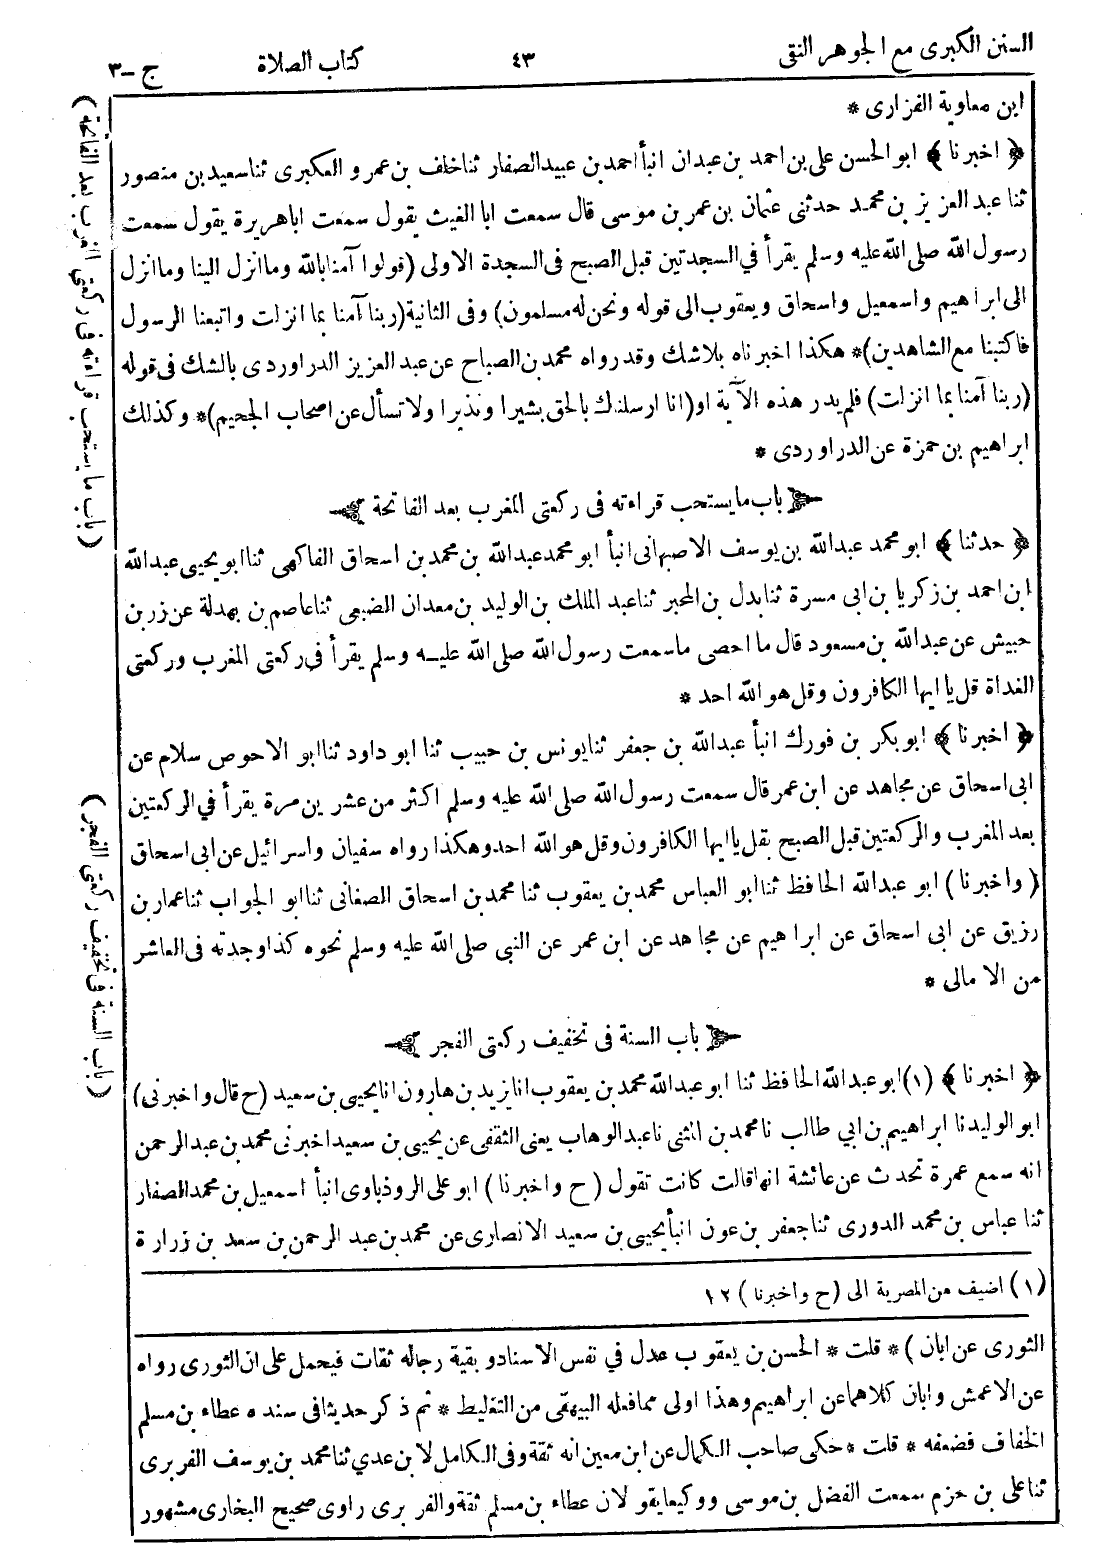 السنن الكبرى مع الجوهر النقى ٤٣ كتاب الصلاة ج -٣
ابن معاوية الفزارى *
﴿ اخبرنا ﴾ ابو الحسن على بن احمد بن عبدان انبأ احمد بن عبيد الصفار ثنا خلف بن عمرو العكبرى ثنا سعيد بن منصور
ثنا عبد العزيز بن محمد حدثنى عثمان بن عمر بن موسى قال سمعت ابا الغيث يقول سمعت اباهريرة يقول سمعت
رسول الله صلى الله عليه وسلم يقرأ في السجدتين قبل الصبح فى السجدة الاولى (قولوا آمنا بالله وما انزل الينا وما انزل
الى ابراهيم واسمعيل واسحاق ويعقوب الى قوله ونحن له مسلمون) وفى الثانية (ربنا آمنا بما انزلت واتبعنا الرسول
فاكتبنا مع الشاهدين)* هكذا اخبرناه بلاشك وقد رواه محمد بن الصباح عن عبد العزيز الدراوردى بالشك فى قوله
(ربنا آمنا بما انزلت) فلم يدر هذه الآية او(انا ارسلنك بالحق بشيرا ونذيرا ولا تسأل عن اصحاب الجحيم)* وكذلك
ابراهيم بن حمزة عن الدراوردى *
باب ما يستحب قراءته فى ركعتى المغرب بعد الفاتحة
﴿ حدثنا ﴾ ابو محمد عبد الله بن يوسف الاصبهانى انبأ ابو محمد عبد الله بن محمد بن اسحاق الفاكهى ثنا ابو يحيى عبد الله
ابن احمد بن زكريا بن ابى مسرة ثنا بدل بن المحبر ثنا عبد الملك بن الوليد بن معدان الضبعى ثنا عاصم بن بهدلة عن زر بن
حبيش عن عبد الله بن مسعود قال ما احصى ما سمعت رسول الله صلى الله عليه وسلم يقرأ فى ركعتى المغرب وركعتى
الغداة قل يا ايها الكافرون وقل هو الله احد *
﴿ اخبرنا ﴾ ابو بكر بن فورك انبأ عبد الله بن جعفر ثنا يونس بن حبيب ثنا ابو داود ثنا ابو الاحوص سلام عن
ابى اسحاق عن مجاهد عن ابن عمر قال سمعت رسول الله صلى الله عليه وسلم اكثر من عشرين مرة يقرأ في الركعتين
بعد المغرب والركعتين قبل الصبح بقل يا ايها الكافرون وقل هو الله احد وهكذا رواه سفيان واسرائيل عن ابى اسحاق
( واخبرنا ) ابو عبد الله الحافظ ثنا ابو العباس محمد بن يعقوب ثنا محمد بن اسحاق الصغانى ثنا ابو الجواب ثنا عمار بن
رزيق عن ابى اسحاق عن ابراهيم عن مجاهد عن ابن عمر عن النبى صلى الله عليه وسلم نحوه كذا وجدته فى العاشر
من الامالى *
باب السنة فى تخفيف ركعتى الفجر
﴿ اخبرنا ﴾ (١) ابو عبد الله الحافظ ثنا ابو عبد الله محمد بن يعقوب انا يزيد بن هارون انا يحيى بن سعيد (ح قال واخبرنى)
ابو الوليد نا ابراهيم بن ابي طالب نا محمد بن المثنى نا عبد الوهاب يعنى الثقفى عن يحيى بن سعيد اخبرنى محمد بن عبد الرحمن
انه سمع عمرة تحدث عن عائشة انها قالت كانت تقول ( ح واخبرنا ) ابو على الروذبارى انبأ اسمعيل بن محمد الصفار
ثنا عباس بن محمد الدورى ثنا جعفر بن عون انبأ يحيى بن سعيد الانصارى عن محمد بن عبد الرحمن بن سعد بن زرارة
(١) اضيف من المصرية الى (ح واخبرنا) ١٢
الثورى عن ابان )* قلت * الحسن بن يعقوب عدل في نفس الاسناد وبقية رجاله ثقات فيحمل على ان الثورى رواه
عن الاعمش وابان كلاهما عن ابراهيم وهذا اولى مما فعله البيهقى من التغليط * ثم ذكر حديثا فى سنده عطاء بن مسلم
الخفاف فضعفه * قلت * حكى صاحب الكمال عن ابن معين انه ثقة وفى الكامل لابن عدي ثنا محمد بن يوسف الفربرى
ثنا على بن خزم سمعت الفضل بن موسى ووكيعا يقولان عطاء بن مسلم ثقة والفربرى راوى صحيح البخارى مشهور
(باب ما يستحب قراءته فى ركعتى المغرب بعد الفاتحة)
(باب السنة فى تخفيف ركعتى الفجر)